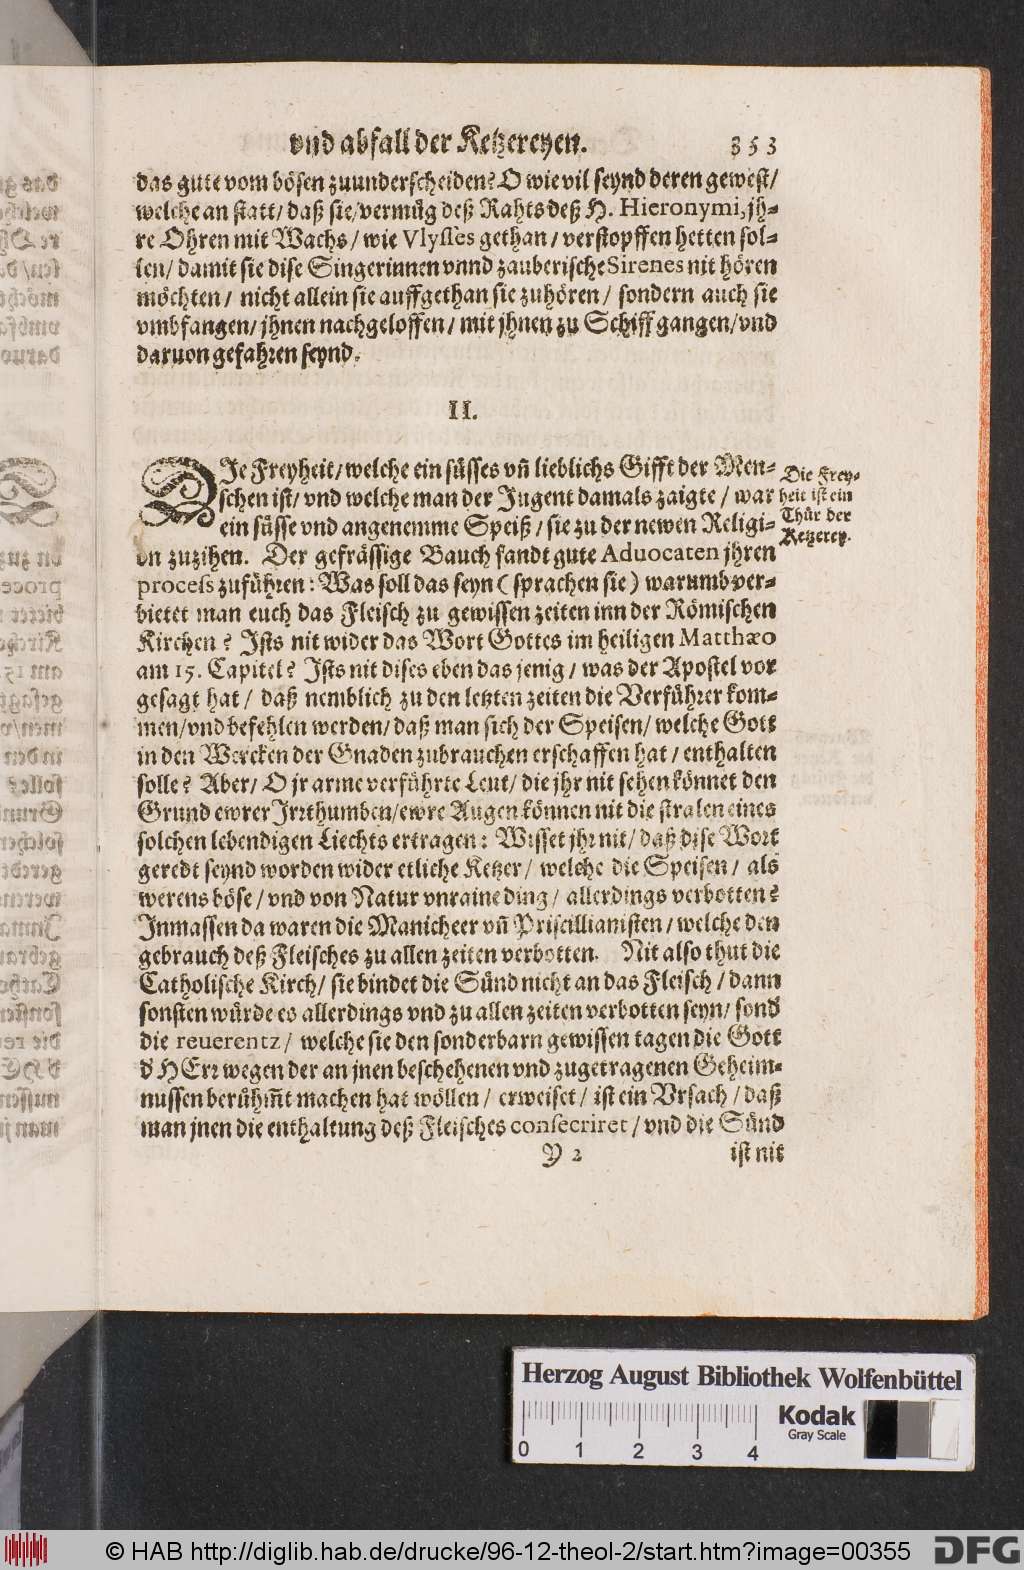 vnd abfall der Ketzereyen. 353
das gute vom bösen zuunderscheiden? O wie vil seynd deren gewest/
welche an statt/ daß sie/ vermüg deß Rahts deß H. Hieronymi, jh-
re Ohren mit Wachs/ wie Vlysses gethan/ verstopffen hetten sol-
len/ damit sie dise Singerinnen vnnd zauberische Sirenes nit hören
möchten/ nicht allein sie auffgethan sie zuhören/ sondern auch sie
vmbfangen/ jhnen nachgeloffen/ mit jhnen zu Schiff gangen/ vnd
daruon gefahren seynd.
II.
DIe Freyheit/ welche ein süsses vñ lieblichs Gifft der Men-
schen ist/ vnd welche man der Jugent damals zaigte/ war
ein süsse vnd angenemme Speiß/ sie zu der newen Religi-
on zuzihen. Der gefrässige Bauch fandt gute Aduocaten jhren
process zuführen: Was soll das seyn (sprachen sie) warumb ver-
bietet man euch das Fleisch zu gewissen zeiten inn der Römischen
Kirchen? Ists nit wider das Wort Gottes im heiligen Matthæo
am 15. Capitel? Ists nit dises eben das jenig/ was der Apostel vor
gesagt hat/ daß nemblich zu den letzten zeiten die Verführer kom-
men/ vnd befehlen werden/ daß man sich der Speisen/ welche Gott
in den Wercken der Gnaden zubrauchen erschaffen hat/ enthalten
solle? Aber/ O jr arme verführte Leut/ die jhr nit sehen könnet den
Grund ewrer Irrthumben/ ewre Augen können nit die stralen eines
solchen lebendigen Liechts ertragen: Wisset jhr nit/ daß dise Wort
geredt seynd worden wider etliche Ketzer/ welche die Speisen/ als
werens böse/ vnd von Natur vnraine ding/ allerdings verbotten?
Inmassen da waren die Manicheer vñ Priscillianisten/ welche den
gebrauch deß Fleisches zu allen zeiten verbotten. Nit also thut die
Catholische Kirch/ sie bindet die Sünd nicht an das Fleisch/ dann
sonsten würde es allerdings vnd zu allen zeiten verbotten seyn/ sond'
die reuerentz/ welche sie den sonderbarn gewissen tagen die Gott
d' HErr wegen der an jnen beschehenen vnd zugetragenen Geheim-
nussen berühm̃t machen hat wöllen/ erweiset/ ist ein Vrsach/ daß
man jnen die enthaltung deß Fleisches consecriret/ vnd die Sünd
Y 2 ist nit
Die Frey-
heit ist ein
Thür der
Ketzerey.
Herzog August Bibliothek Wolfenbüttel
0 1 2 3 4
Kodak
Gray Scale
© HAB http://diglib.hab.de/drucke/96-12-theol-2/start.htm?image=00355
DFG